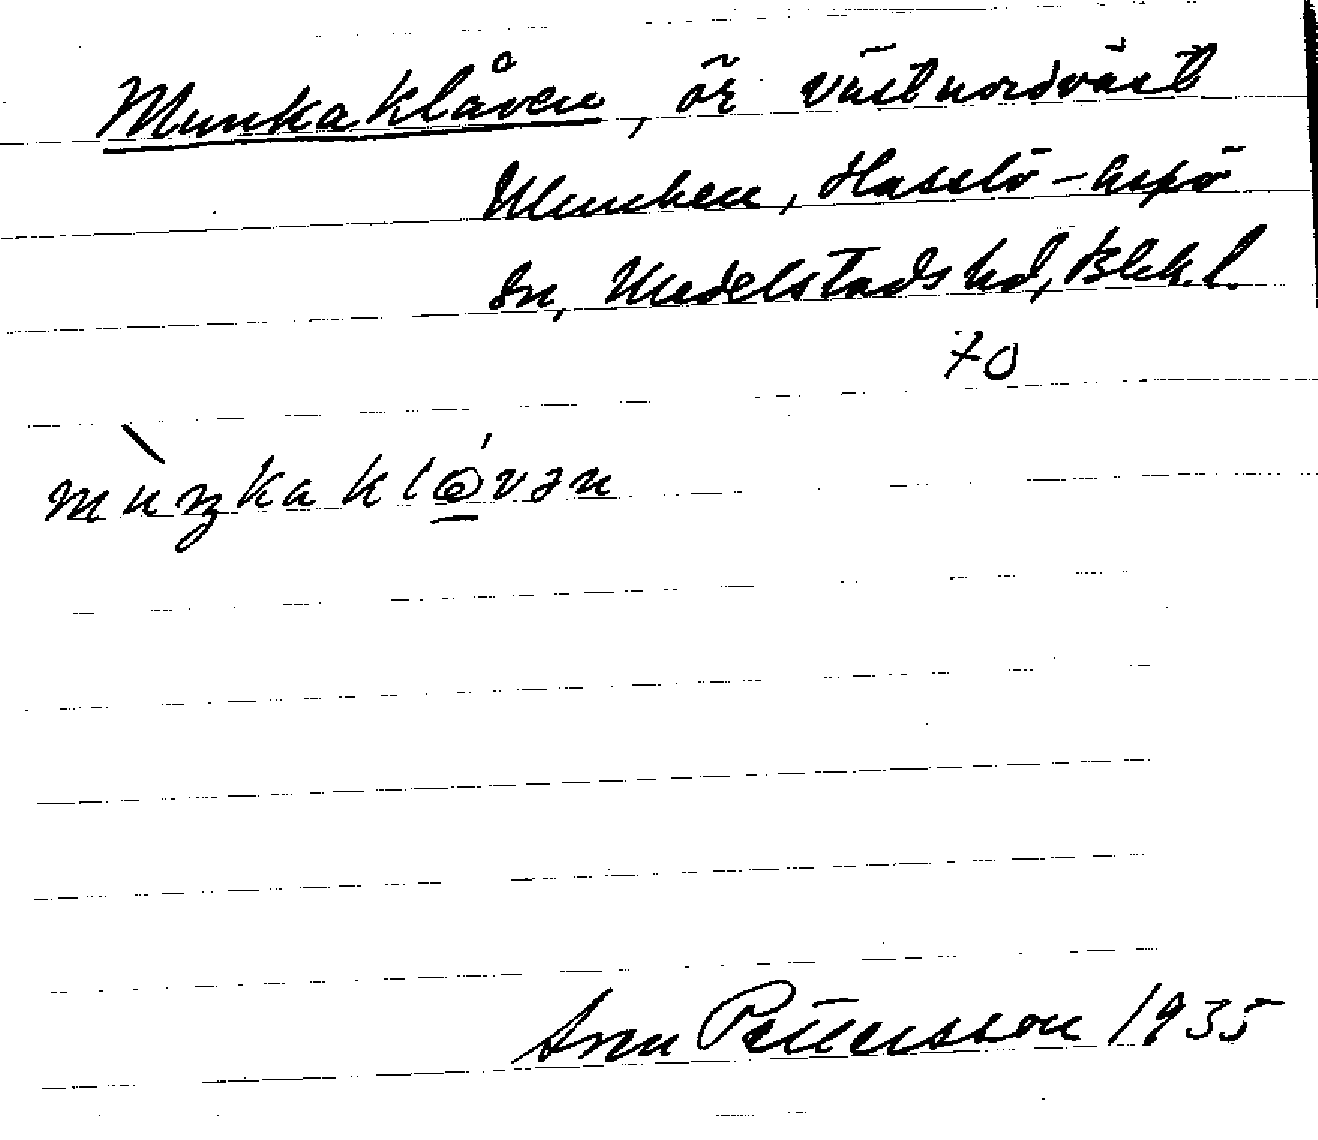 Munkaklåven, ör västnordväst
Munken, Hasslö-Aspö
sn, Medelstads hd, Blek.l.
70
mùŋkaklɷ́vən
Arne Pettersson 1935